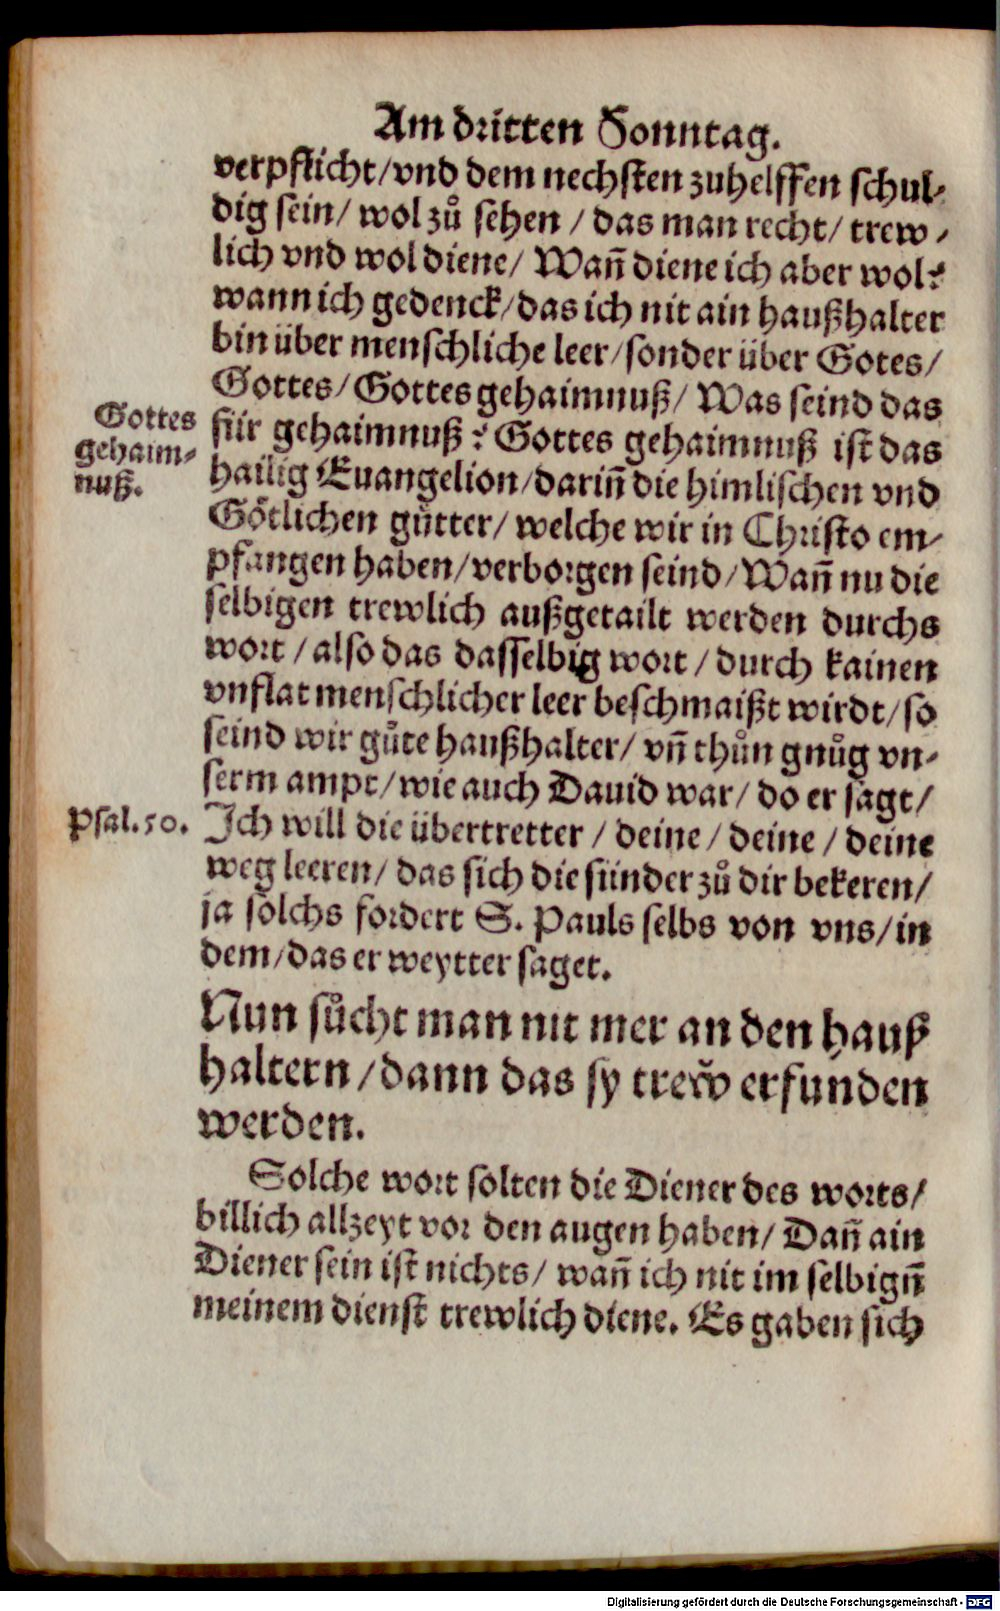 Am dritten Sonntag.
verpflicht/vnd dem nechsten zuhelffen schul-
dig sein/ wol zů sehen / das man recht/ trew-
lich vnd wol diene/ Wañ diene ich aber wol?
wann ich gedenck/das ich nit ain haußhalter
bin über menschliche leer/sonder über Gotes/
Gottes/ Gottes gehaimnuß/ Was seind das
Gottes
gehaim-
nuß.
für gehaimnuß? Gottes gehaimnuß ist das
hailig Euangelion/dariñ die himlischen vnd
Götlichen gůtter/ welche wir in Christo em-
pfangen haben/verborgen seind/Wañ nu die
selbigen trewlich außgetailt werden durchs
wort / also das dasselbig wort / durch kainen
vnflat menschlicher leer beschmaißt wirdt/so
seind wir gůte haußhalter/ vñ thůn gnůg vn-
serm ampt/wie auch Dauid war/ do er sagt/
Psal.50.
Ich will die übertretter / deine / deine / deine
weg leeren/ das sich die sünder zů dir bekeren/
ja solchs fordert S. Pauls selbs von vns/in
dem/das er weytter saget.
Nun sůcht man nit mer an den hauß
haltern/dann das sy trew̌ erfunden
werden.
Solche wort solten die Diener des worts/
billich allzeyt vor den augen haben/ Dañ ain
Diener sein ist nichts/ wañ ich nit im selbigñ
meinem dienst trewlich diene. Es gaben sich
Digitalisierung gefördert durch die Deutsche Forschungsgemeinschaft - DFG